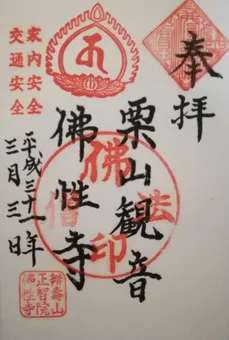 奉拝
栗山観音
佛性寺
平成三十一年
三月三日
家内安全
交通安全
佛法
僧印
正智院
佛性寺